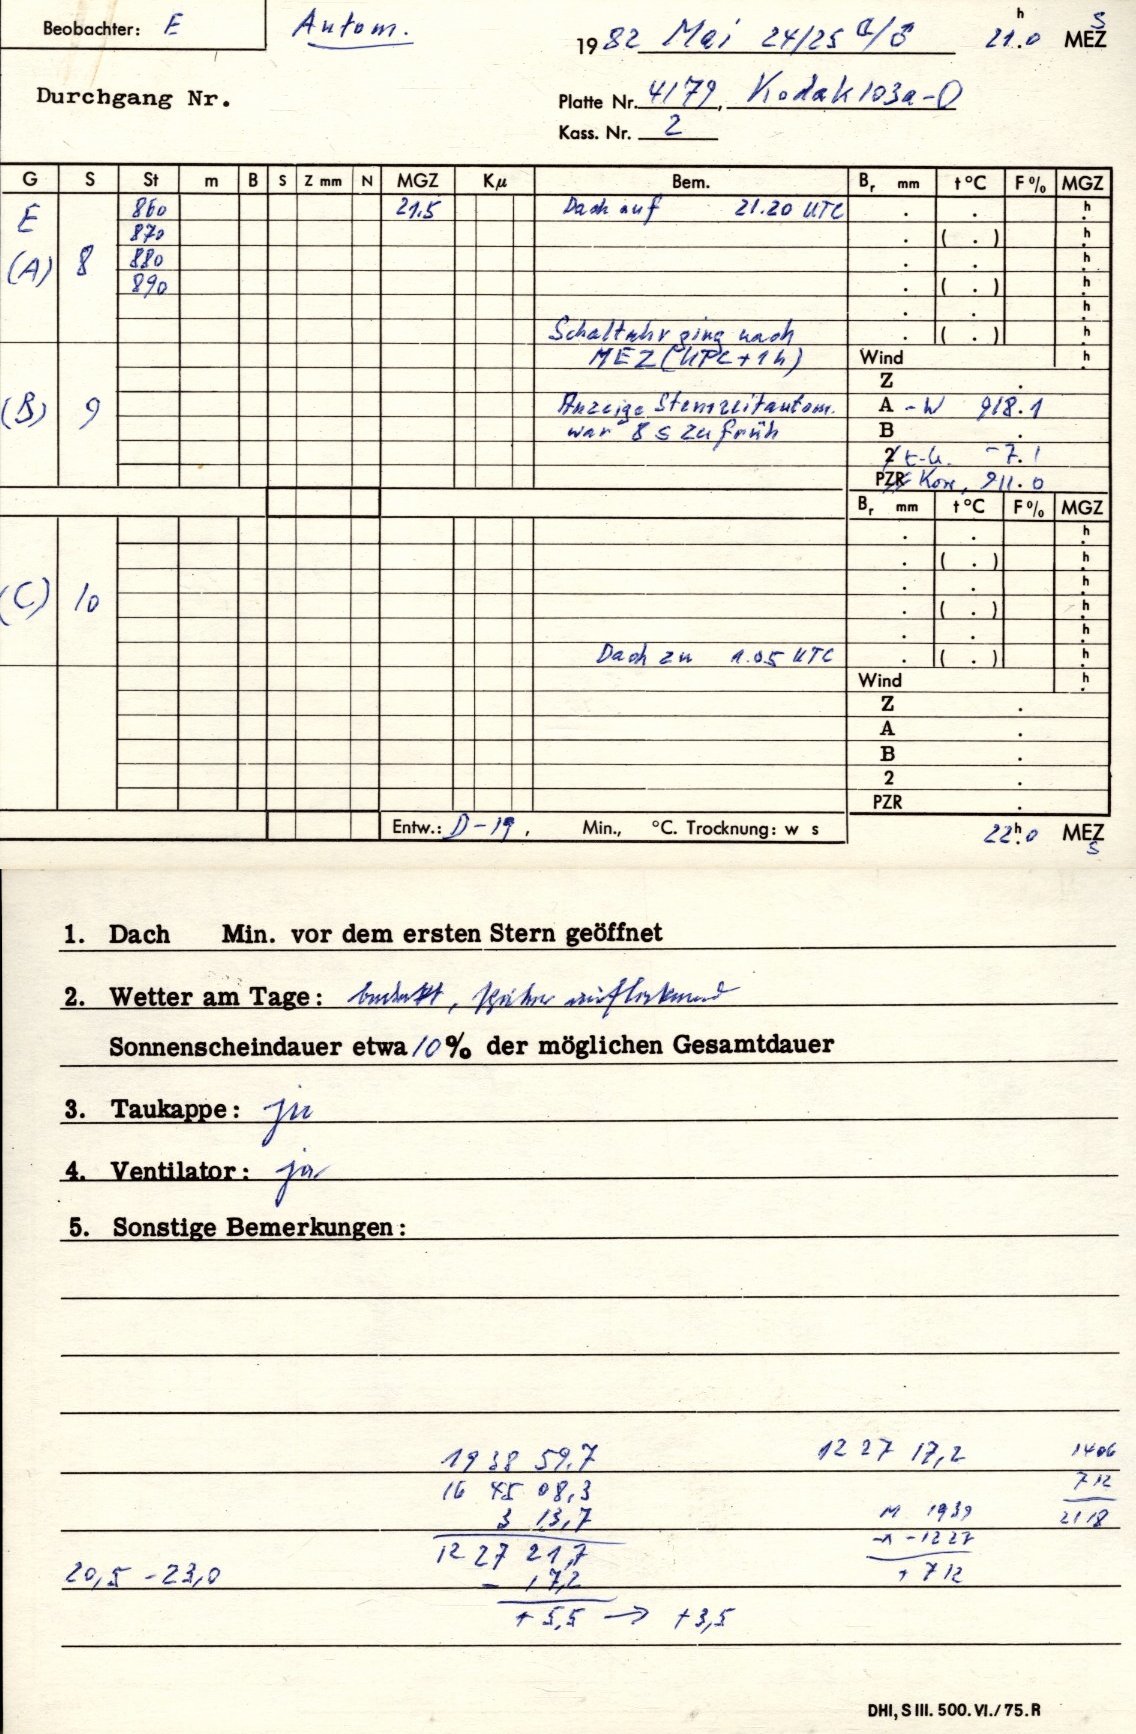 Beobachter: E Autom. 1982 Mai 24/25 ☾/♂ 21.h0 MEZ S
Durchgang Nr. Platte Nr. 4179, Kodak 103a-O
Kass. Nr. 2
G S St m B S Z mm N MGZ Kμ Bem. Br mm t °C F% MGZ
E 860 21.5 Dach auf 21.20 UTC . . h
870 . ( . ) h
(A) 8 880 . . h
890 . ( . ) h
. . h
Schaltuhr ging nach . ( . ) h
MEZ (UTC + 1h) Wind h
Z .
(B) 9 Anzeige Sternzeitautom. A - W 918.1
war 8 s zu früh B .
2 t-k. -7.1
PZR Korr, 911.0
Br mm t °C F% MGZ
. . h
. ( . ) h
. . h
(C) 10 . ( . ) h
. . h
Dach zu 1.05 UTC . ( . ) h
Wind h
Z .
A .
B .
2 .
PZR .
Entw.: D-19, Min., °C. Trocknung: w s 22.h0 MEZ S
1. Dach Min. vor dem ersten Stern geöffnet
2. Wetter am Tage: bedeckt, später auflockernd
Sonnenscheindauer etwa 10% der möglichen Gesamtdauer
3. Taukappe: ja
4. Ventilator: ja
5. Sonstige Bemerkungen:
19 38 59.7 12 27 17,2 1406
16 45 08,3 712
3 13,7 M 1939 2118
12 27 21,7 -1227
20,5 - 23,0 - 17,2 + 712
+ 5,5 → + 3,5
DHI, S III. 500. VI./75. R